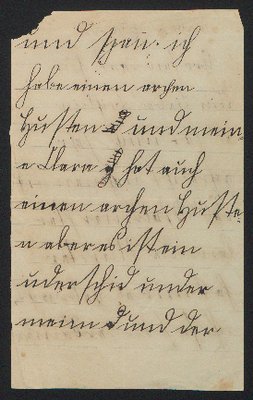 und ich
habe einen archen
Husten und mein
e Clara hat auch
einen archen Huste
n aber es ist ein
uderschid under
meim und der